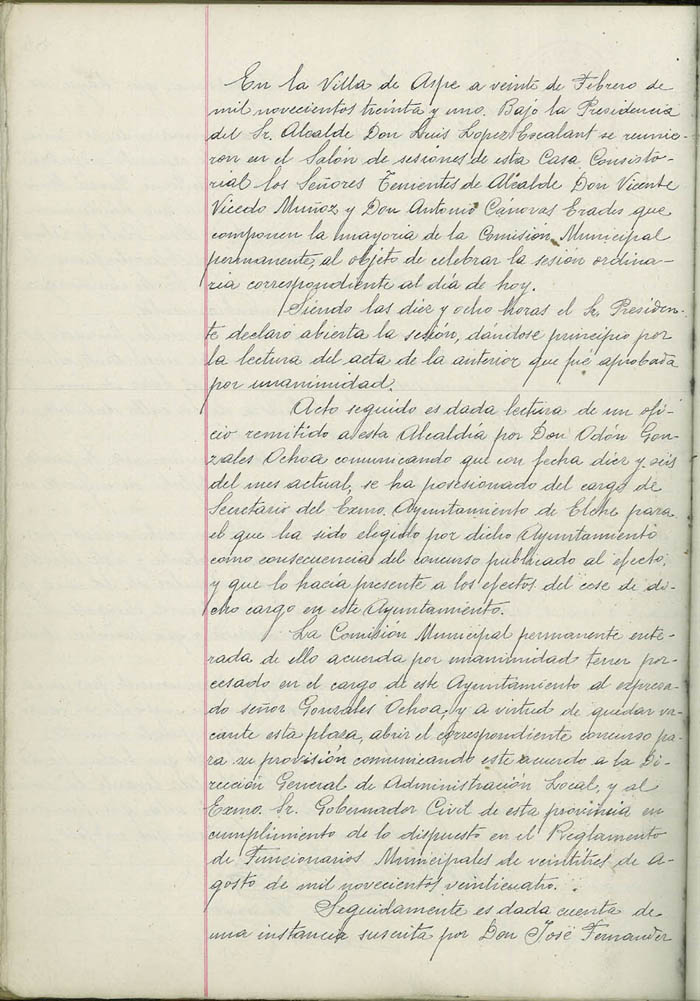 En la Villa de Aspe a veinte de Febrero de
mil novecientos treinta y uno. Bajo la Presidencia
del Sr. Alcalde Don Luis López Escalant se reunie-
ron en el Salón de sesiones de esta Casa Consisto-
rial los Señores Tenientes de Alcalde Don Vicente
Vicedo Muñoz y Don Antonio Cánovas Erades que
componen la mayoria de la Comisión Municipal
permanente, al objeto de celebrar la sesión ordina-
ria correspondiente al día de hoy.
Siendo las diez y ocho horas el Sr. Presiden-
te declaró abierta la sesión, dándose principio por
la lectura del acta de la anterior que fué aprobada
por unanimidad.
Acto seguido es dada lectura de un ofi-
cio remitido a esta Alcaldía por Don Odón Gon-
zales Ochoa comunicando que con fecha diez y seis
del mes actual, se ha posesionado del cargo de
Secretario del Exmo. Ayuntamiento de Elche para
el que ha sido elegido por dicho Ayuntamiento
como consecuencia del concurso publicado al efecto,
y que lo hacía presente a los efectos del cese de di-
cho cargo en este Ayuntamiento.
La Comisión Municipal permanente ente-
rada de ello acuerda por unanimidad tener por
cesado en el cargo de este Ayuntamiento al expresa-
do señor Gonzales Ochoa, y a virtud de quedar va-
cante esta plaza, abrir el correspondiente concurso pa-
ra su provisión comunicando este acuerdo a la Di-
rección General de Administración Local, y al
Exmo. Sr. Gobernador Civil de esta provincia en
cumplimiento de lo dispuesto en el Reglamento
de Funcionarios Municipales de veintitres de A-
gosto de mil novecientos veinticuatro.
Seguidamente es dada cuenta de
una instancia suscrita por Don José Fernandez